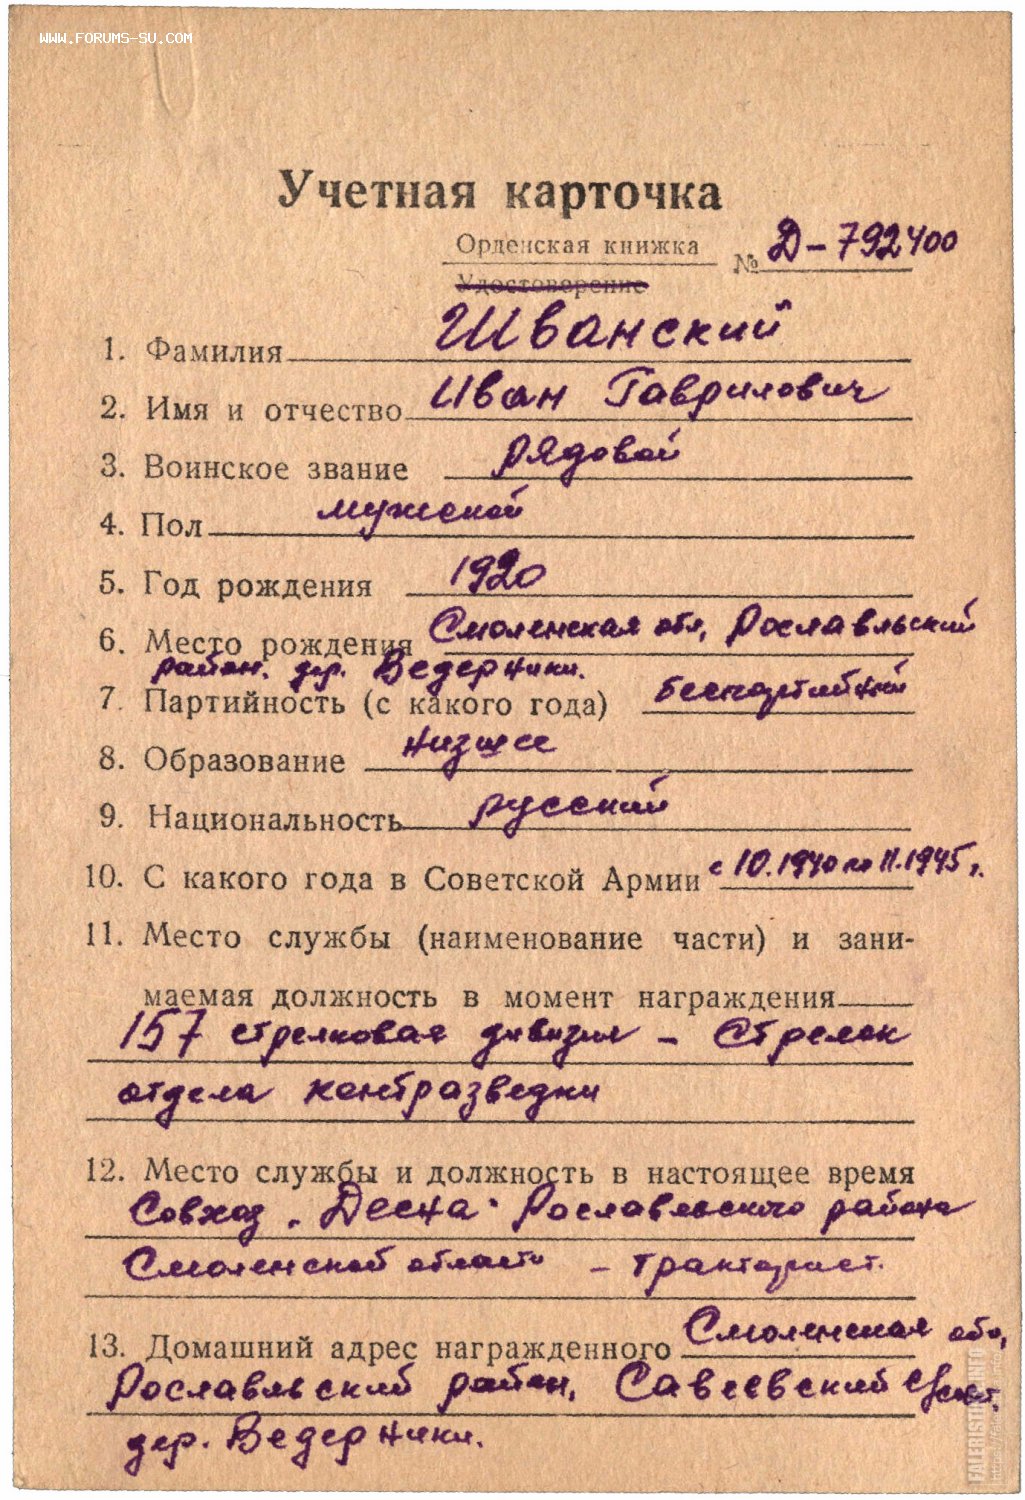 WWW.FORUMS-SU.COM
Учетная карточка
Орденская книжка
Удостоверение
№ Д-792400
1. Фамилия Шванский
2. Имя и отчество Иван Гаврилович
3. Воинское звание рядовой
4. Пол мужской
5. Год рождения 1920
6. Место рождения Смоленская обл, Рославльский
район. дер. Ведерники.
7. Партийность (с какого года) беспартийный
8. Образование низшее
9. Национальность русский
10. С какого года в Советской Армии с 10.1940 по 11.1945 г.
11. Место службы (наименование части) и зани-
маемая должность в момент награждения
157 стрелковая дивизия - Стрелок
отдела контразведки
12. Место службы и должность в настоящее время
Совхоз "Десна" Рославльского района
Смоленской области - тракторист.
13. Домашний адрес награжденного Смоленская обл,
Рославльский район, Савеевский с/совет.
дер. Ведерники.
FALERISTIKA.INFO